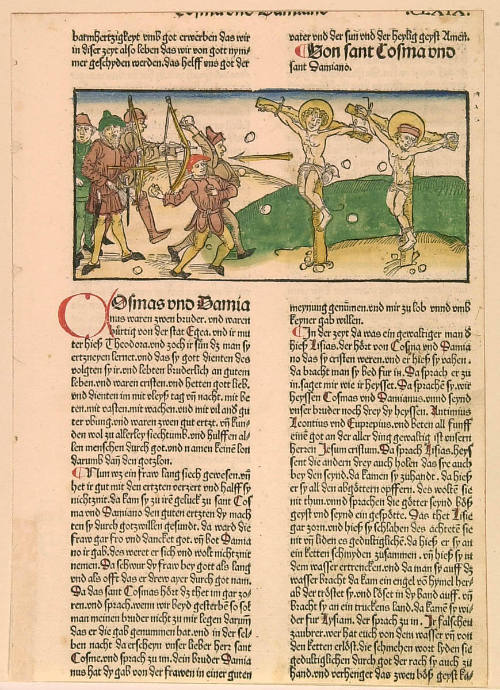 Cosma vnd Damiano .CLXIX.
barmhertzigkeyt vmb got erwerben das wir
in diser zeyt also leben das wir von gott nym-
mer geschyden werden. das helff vns got der
vater vnd der sun vnd der heylig geyst Amen.
Von sant Cosma vnd
sant Damiano.
COsmas vnd Damia
nus waren zwen bruder. vnd waren
pürtig von der stat Egea. vnd ir mu
ter hieß Theodora. vnd zoch ir sün dz man sy
ertzneyen lernet. vnd das sy gott dienten des
volgten sy ir. vnd lebten bruderlich an gutem
leben. vnd waren cristen. vnd hetten gott lieb.
vnd dienten im mit vleyß tag vñ nacht. mit be
ten. mit vasten. mit wachen. vnd mit vil and gu
ter vbung. vnd waren zwen gut ertzt. vñ kun-
den wol zu allerley siechtumb. vnd hülffen al-
len menschen durch got. vnd namen keinē lon
darumb dañ den gotzlon.
Nun wz ein fraw lang siech gewesen. vñ
het ir gut mit den ertzten verzert vnd halff sy
nichtznit. da kam sy zu irē gelück zu sant Cos
ma vnd Damiano den guten ertzten dy mach
ten sy durch gotzwillen gesundt. da ward die
fraw gar fro vnd dancket got. vñ bot Damia
no ir gab. des weret er sich vnd wolt nichtznit
nemen. Da schwur dy fraw bey gott als lang
vnd als offt das er drew ayer durch got nam.
Da das sant Cosmas hört dz thet im gar zo-
ren. vnd sprach. wenn wir beyd gesterbē so sol
man meinen bruder nicht zu mir legen darum
das er die gab genummen hat. vnd in der sel-
ben nacht da erscheyn vnser lieber herr sant
Cosme. vnd sprach zu im. dein bruder Damia
nus hat dy gab von der frawen in einer guten
meynung genūmen. vnd mir zu lob vnnd vmb
keyner gab willen.
In der zeyt da was ein gewaltiger man d
hieß Lisias. der hört von Cosma vnd Damia
no das sy cristen weren. vnd er hieß sy vahen.
da bracht man sy bed für in. Da sprach er zu
in. saget mir wie ir heysset. Da sprachē sy. wir
heyssen Cosmas vnd Damianus. vnnd seynd
vnser bruder noch drey dy heyssen. Antimius
Leontius vnd Euprepius. vnd beten all funff
einē got an der aller ding gewaltig ist vnsern
herren Jesum cristum. Da sprach Lisias. heys
sent die andern drey auch holen das sye auch
bey den seynd. da kamen sy zuhandt. da hieß
er sy all den abgöttern opffern. des woltē sie
nit thun. vnnd sprachen die götter seynd böß
geyst vnd seynd ein gespötte. Das thet Lisie
gar zorn. vnd hieß sy schlahen des achtetē sie
nit vñ liden es gedultigklichē. da hieß er sy an
ein ketten schmyden zusammen. vñ hieß sy in
dem wasser ertrencken. vnd da man sy auff dz
wasser bracht da kam ein engel vō hymel her-
ab der tröstet sy. vnd löset in dy band auff. vñ
bracht sy an ein truckens land. da kamē sy wi-
der für Lysiam. der sprach zu in. Ir falschen
zaubrer. wer hat euch von dem wasser vñ von
den ketten erlößt. die schmehen wort lyden sie
gedultigklichen durch got der rach sy auch zu
hand. vnd verhenget das zwen böß geyst ka-